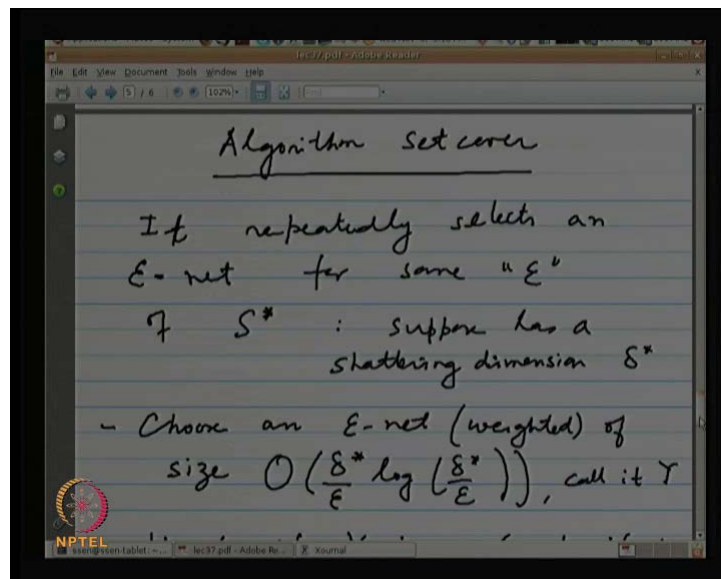 lec37.pdf - Adobe Reader
File Edit View Document Tools Window Help
5 / 6 102% Find
Algorithm Set cover
It repeatedly selects an
ε-net for some "ε"
of S* : suppose has a
shattering dimension δ*
- Choose an ε-net (weighted) of
size O(δ*/ε log(δ*/ε)), call it Y
NPTEL
ssen@ssen-tablet: ~... lec37.pdf - Adobe Re... Xournal